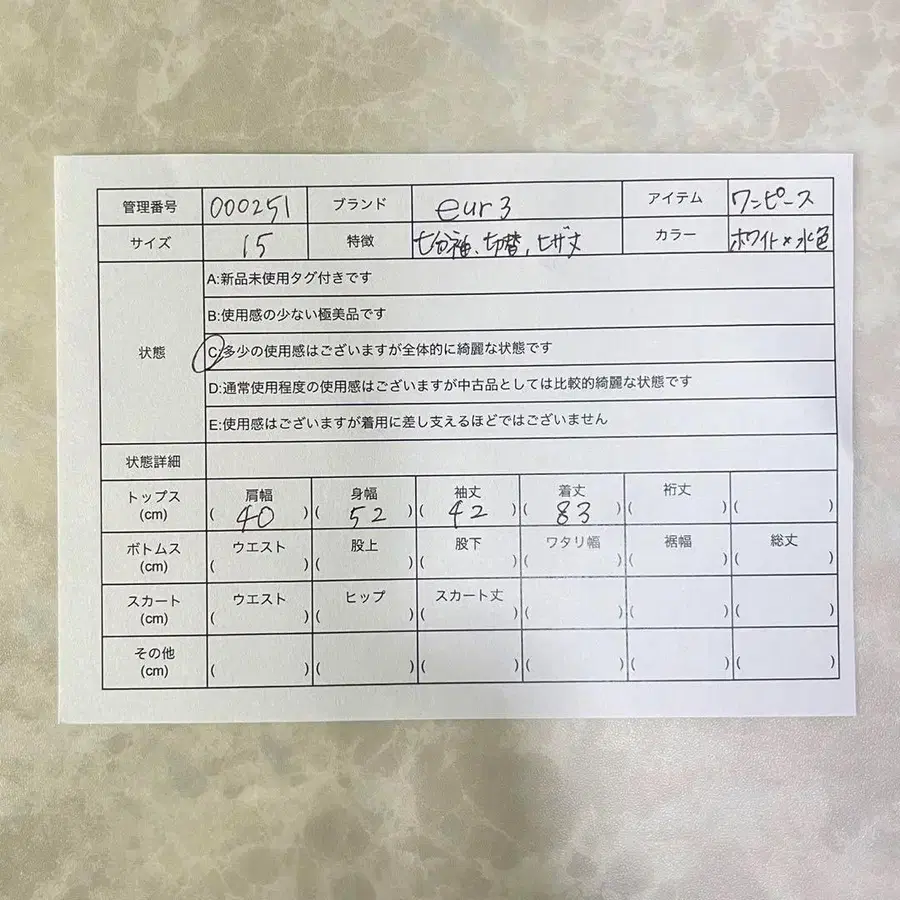 管理番号 000251 ブランド eur3 アイテム ワンピース
サイズ 15 特徴 七分袖、切替、ヒザ丈 カラー ホワイト×水色
状態
A:新品未使用タグ付きです
B:使用感の少ない極美品です
C:多少の使用感はございますが全体的に綺麗な状態です
D:通常使用程度の使用感はございますが中古品としては比較的綺麗な状態です
E:使用感はございますが着用に差し支えるほどではございません
状態詳細
トップス 肩幅 身幅 袖丈 着丈 裄丈
(cm) ( 40 ) ( 52 ) ( 42 ) ( 83 ) ( ) ( )
ボトムス ウエスト 股上 股下 ワタリ幅 裾幅 総丈
(cm) ( ) ( ) ( ) ( ) ( ) ( )
スカート ウエスト ヒップ スカート丈
(cm) ( ) ( ) ( ) ( ) ( ) ( )
その他
(cm) ( ) ( ) ( ) ( ) ( ) ( )